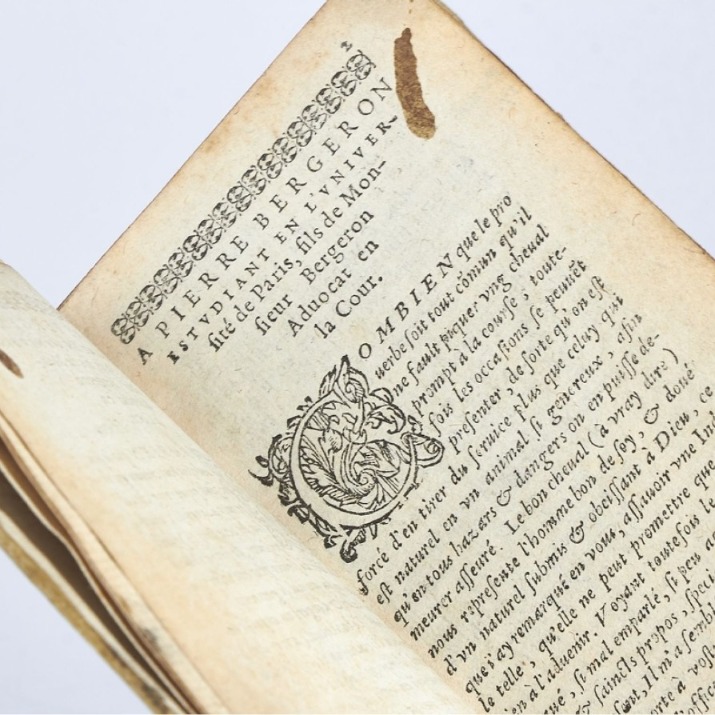 A PIERRE BERGERON
ESTVDIANT EN L'VNIVER-
sité de Paris, fils de Mon-
sieur Bergeron
Aduocat en
la Cour.
COMBIEN que le pro
uerbe soit tout cõmun qu'il
ne fault piquer vng cheual
prompt à la course; toute-
fois les occasions se peuuẽt
presenter, de sorte qu'on est
forcé d'en tirer du seruice plus que celuy qui
est naturel en vn animal si genereux, afin
qu'en tous hazars & dangers on en puisse de-
meurer asseuré. Le bon cheual (à vray dire)
nous represente l'homme bon de soy, & doué
d'vn naturel submis & obeissant à Dieu, ce
que i'ay remarqué en vous, assauoir vne
le telle, qu'elle ne peut promettre que
en à l'aduenir. Voyant toutesfois le
si mal emparlé, si peu
& saincts propos,
Il m'a